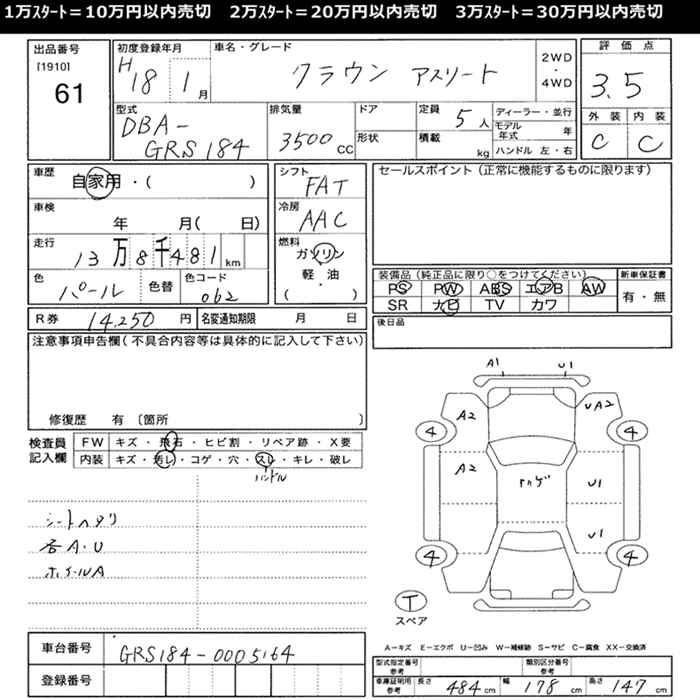 1万ｽﾀｰﾄ＝10万円以内売切　2万ｽﾀｰﾄ＝20万円以内売切　3万ｽﾀｰﾄ＝30万円以内売切
出品番号
[1910]
61
初度登録年月
H18 1月
車名・グレード
クラウン アスリート
2WD
・
4WD
評価点
3.5
外装 内装
C C
型式
DBA-
GRS184
排気量
3500 CC
ドア
形状
定員
5人
積載
kg
ディーラー・並行
モデル年式 年
ハンドル 左・右
車歴
自家用・( )
シフト
FAT
セールスポイント（正常に機能するものに限ります）
車検
年 月( 日)
冷房
AAC
走行
13万8千481km
燃料
ガソリン
軽・油
( ・ )
色
パール
色替
色コード
062
装備品（純正品に限り○をつけてください）
新車保証書
PS PW ABS エアB AW
有・無
SR ナビ TV カワ
R券 14,250円
名変通知期限 月 日
後日品
注意事項申告欄(不具合内容等は具体的に記入して下さい)
修復歴 有 〔箇所 〕
検査員
記入欄
FW キズ・飛石・ヒビ割・リペア跡・X要
内装 キズ・汚レ・コゲ・穴・スレ・キレ・破レ
ハンドル
シートヘタリ
各A・U
ホイールA
A1 U1
A2 UA2
4 4
A2
U1
U1
4 4
T
スペア
A−キズ E−エクボ U−凹み W−補修跡 S−サビ C−腐食 XX−交換済
車台番号
GRS184-0005164
登録番号
型式指定番号
参考
類別区分番号
参考
車庫証明用
参考
長さ 484cm 幅 178cm 高さ 147cm